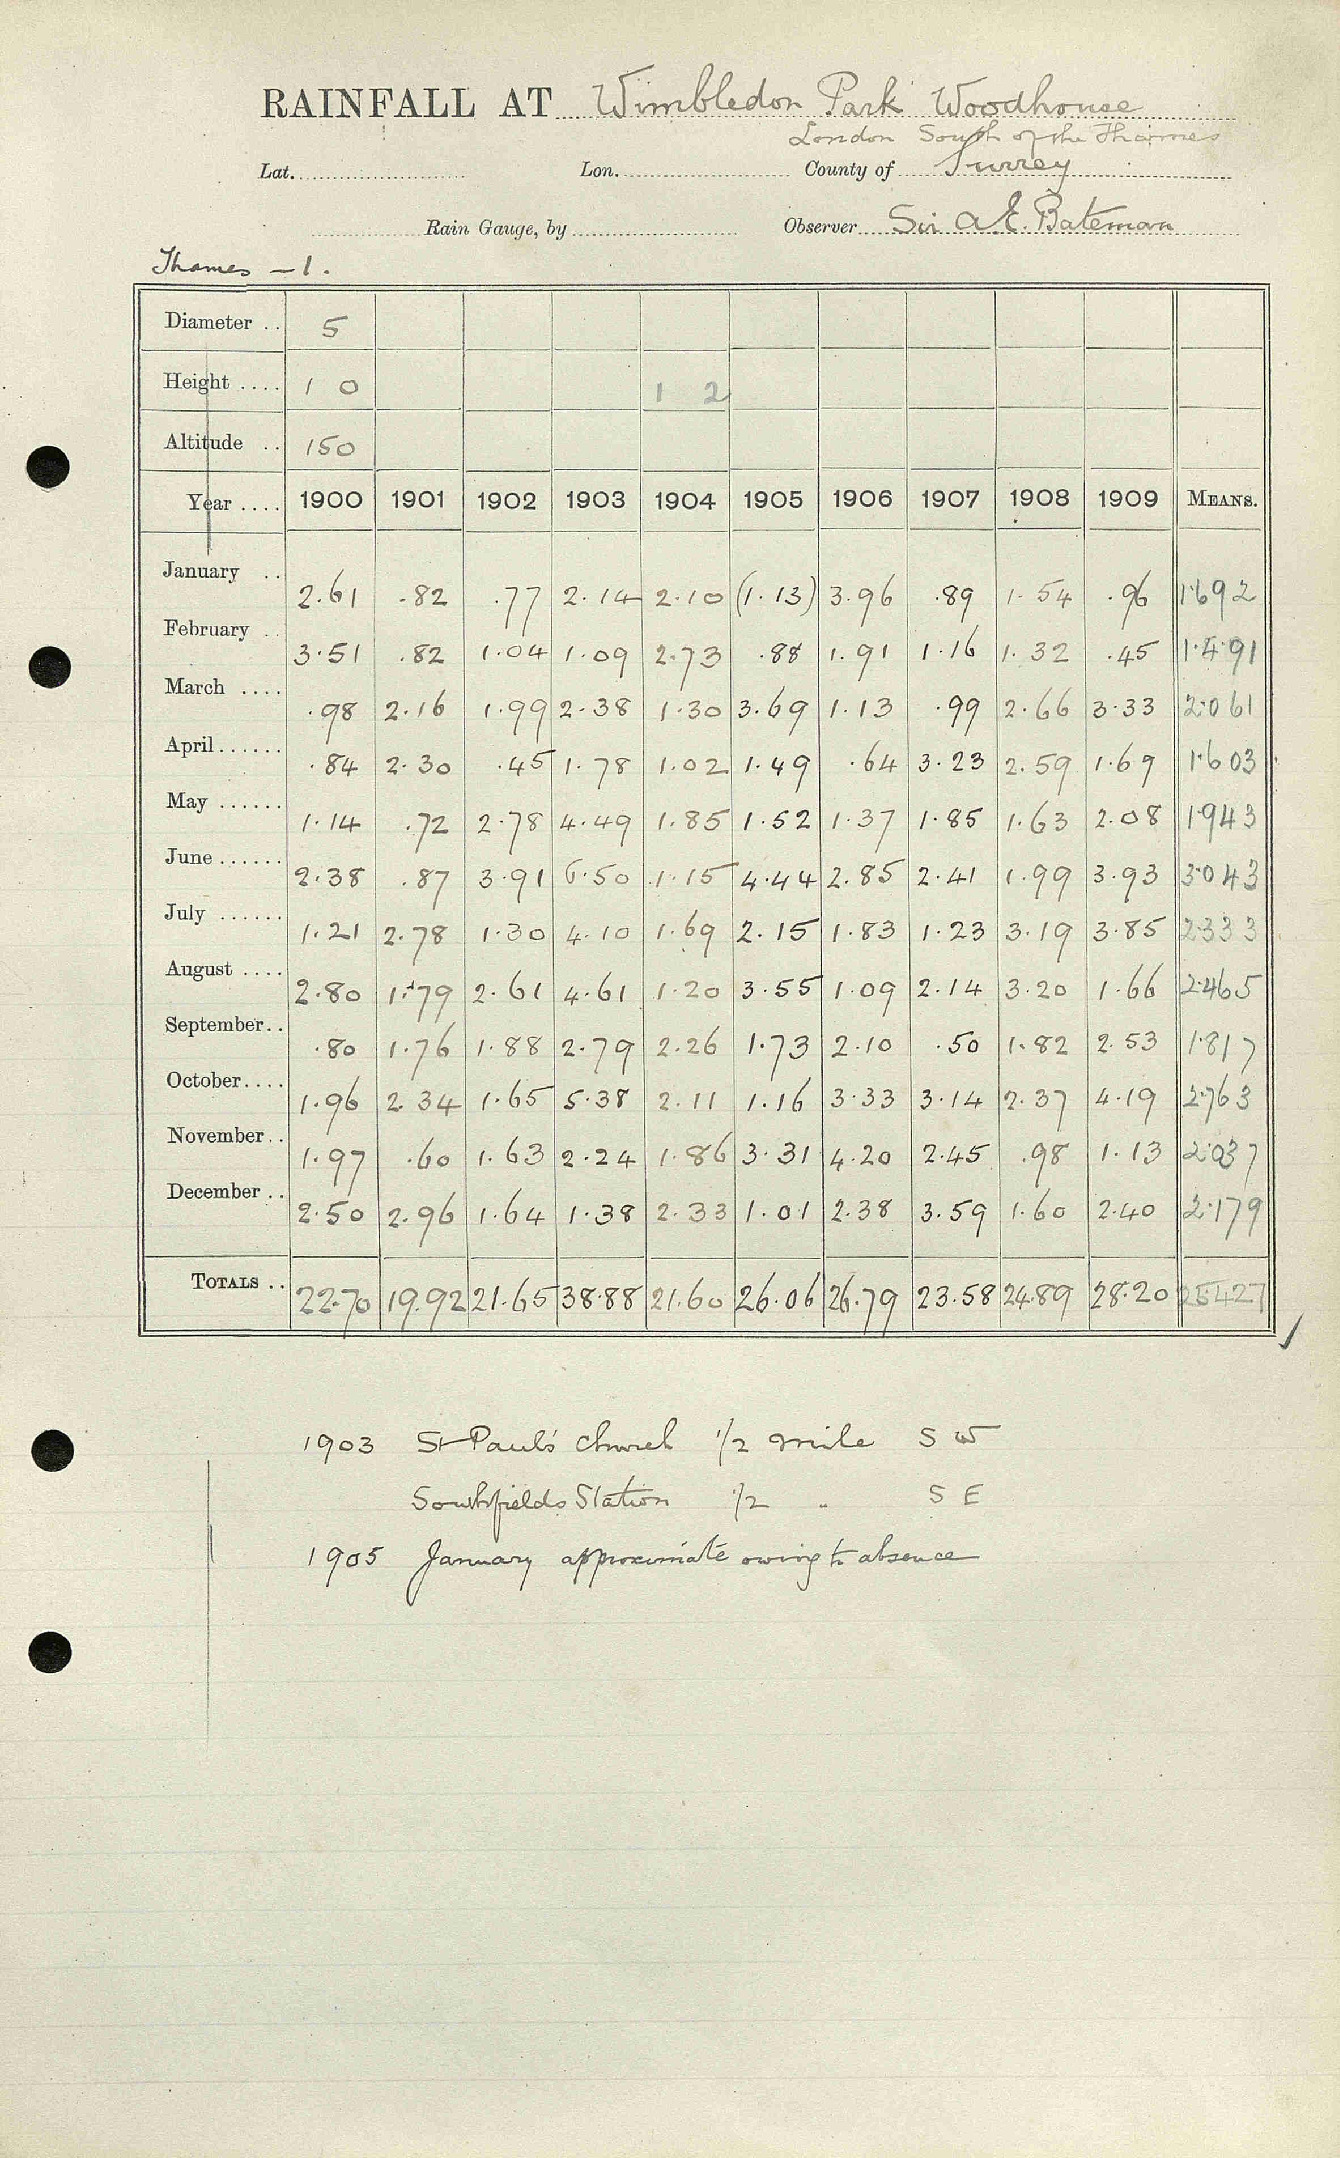 RAINFALL AT Wimbledon Park Woodhouse
London South of the Thames
Lat. Lon. County of Surrey
Rain Gauge, by Observer Sir A.E. Bateman
Thames - 1.
Diameter .. 5
Height .... 1 0 1 2
Altitude .. 150
Year .... 1900 1901 1902 1903 1904 1905 1906 1907 1908 1909 MEANS.
January .. 2.61 .82 .77 2.14 2.10 (1.13) 3.96 .89 1.54 .96 1.692
February .. 3.51 .82 1.04 1.09 2.73 .88 1.91 1.16 1.32 .45 1.491
March .... .98 2.16 1.99 2.38 1.30 3.69 1.13 .99 2.66 3.33 2.061
April ...... .84 2.30 .45 1.78 1.02 1.49 .64 3.23 2.59 1.69 1.603
May ...... 1.14 .72 2.78 4.49 1.85 1.52 1.37 1.85 1.63 2.08 1.943
June ...... 2.38 .87 3.91 6.50 1.15 4.44 2.85 2.41 1.99 3.93 3.043
July ...... 1.21 2.78 1.30 4.10 1.69 2.15 1.83 1.23 3.19 3.85 2.333
August .... 2.80 1.79 2.61 4.61 1.20 3.55 1.09 2.14 3.20 1.66 2.465
September.. .80 1.76 1.88 2.79 2.26 1.73 2.10 .50 1.82 2.53 1.817
October.... 1.96 2.34 1.65 5.38 2.11 1.16 3.33 3.14 2.37 4.19 2.763
November.. 1.97 .60 1.63 2.24 1.86 3.31 4.20 2.45 .98 1.13 2.037
December .. 2.50 2.96 1.64 1.38 2.33 1.01 2.38 3.59 1.60 2.40 2.179
TOTALS .. 22.70 19.92 21.65 38.88 21.60 26.06 26.79 23.58 24.89 28.20 25.427
1903 St Paul's Church 1/2 mile S W
Southfields Station 1/2 " S E
1905 January approximate owing to absence